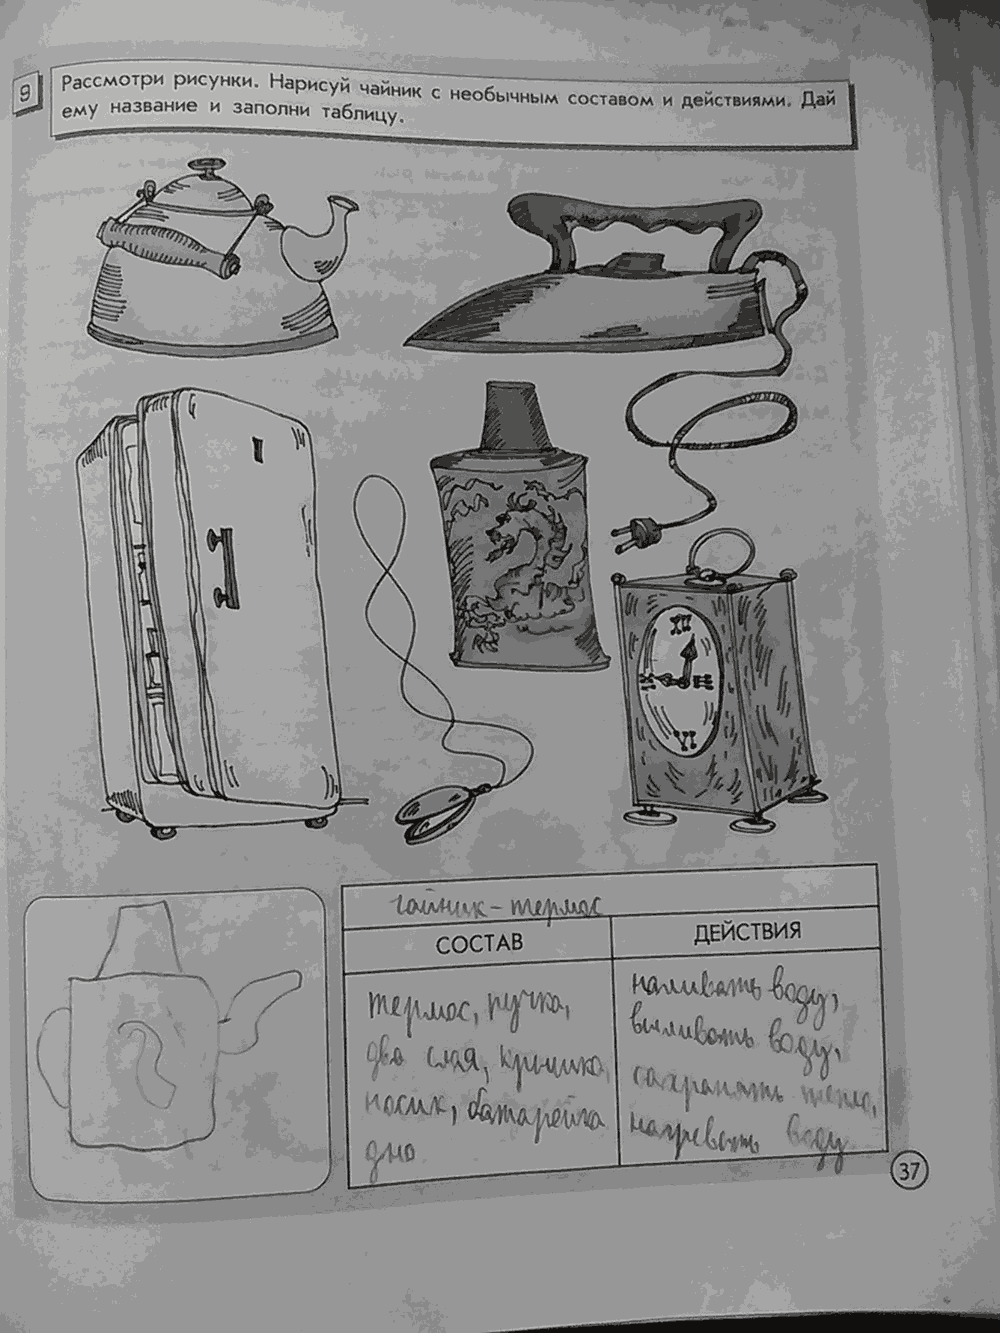 9
Рассмотри рисунки. Нарисуй чайник с необычным составом и действиями. Дай
ему название и заполни таблицу.
XII
VI
чайник-термос
СОСТАВ
ДЕЙСТВИЯ
термос, ручка,
два слоя, крышка,
носик, батарейка
дно
наливать воду,
выливать воду,
сохранять тепло,
нагревать воду
37